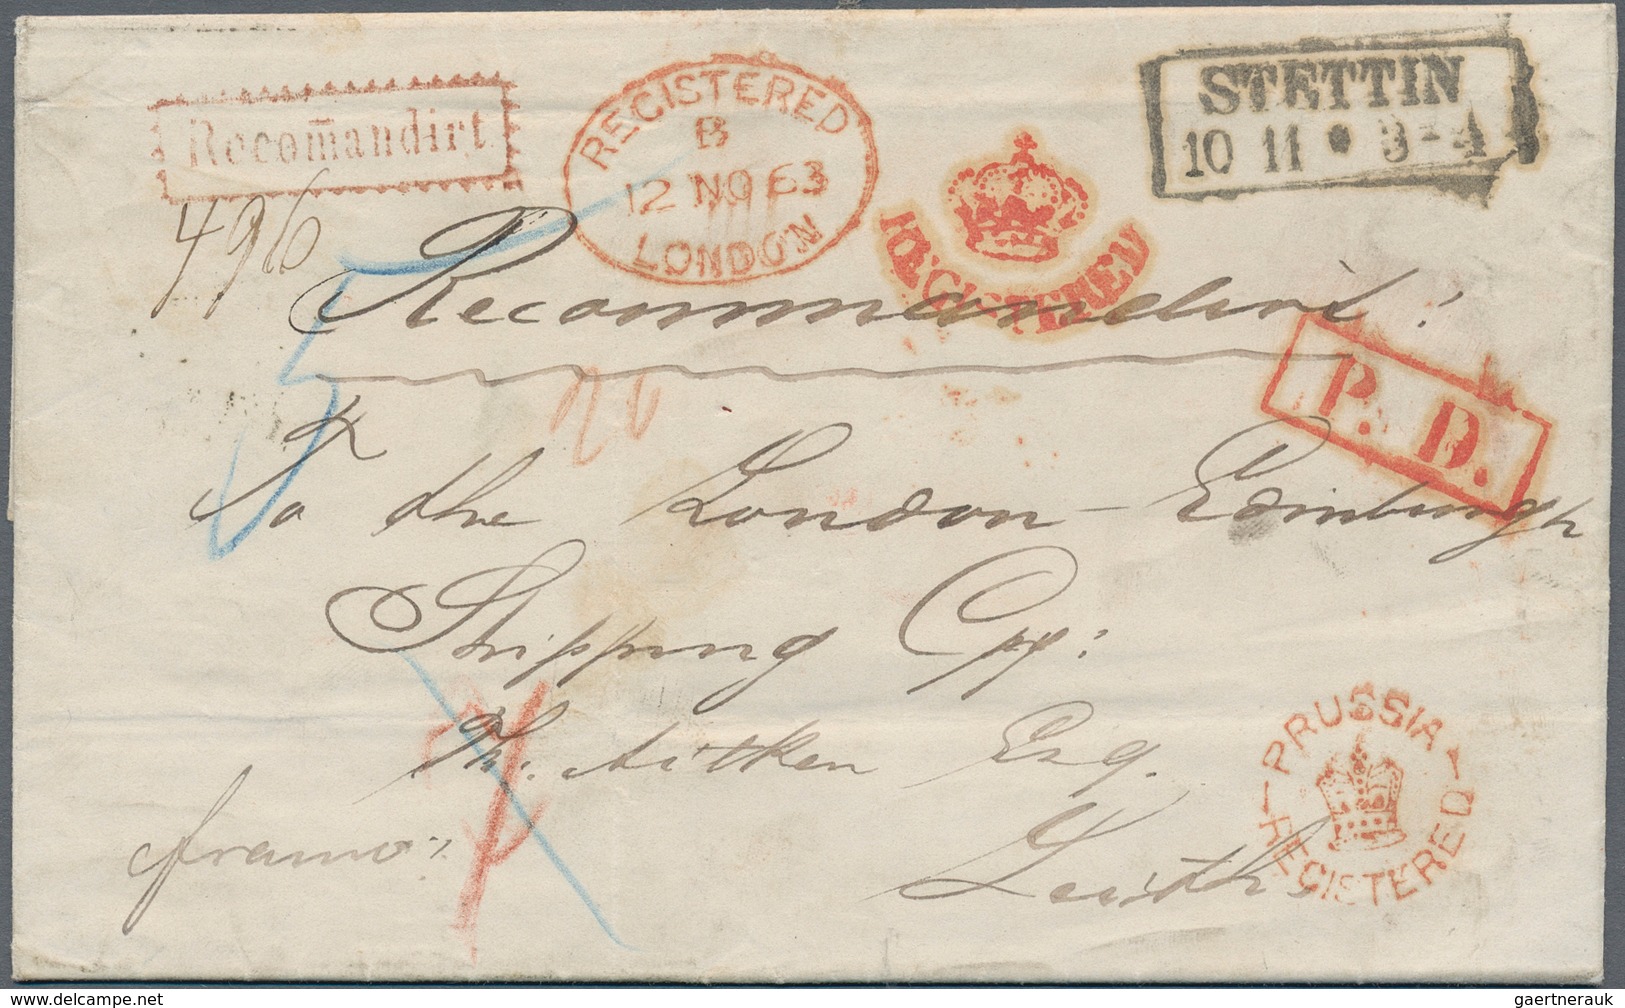 Recom̄andirt
REGISTERED
B
12 NO 63
LONDON
REGISTERED
STETTIN
10 11 * 3-4
496
Recommandirt:
P. D.
To the London-Edinburgh
Shipping Cpy:
Th. Aitken Esq.
franco:
Leith
PRUSSIA
REGISTERED
delcampe.net
gaertnerauk